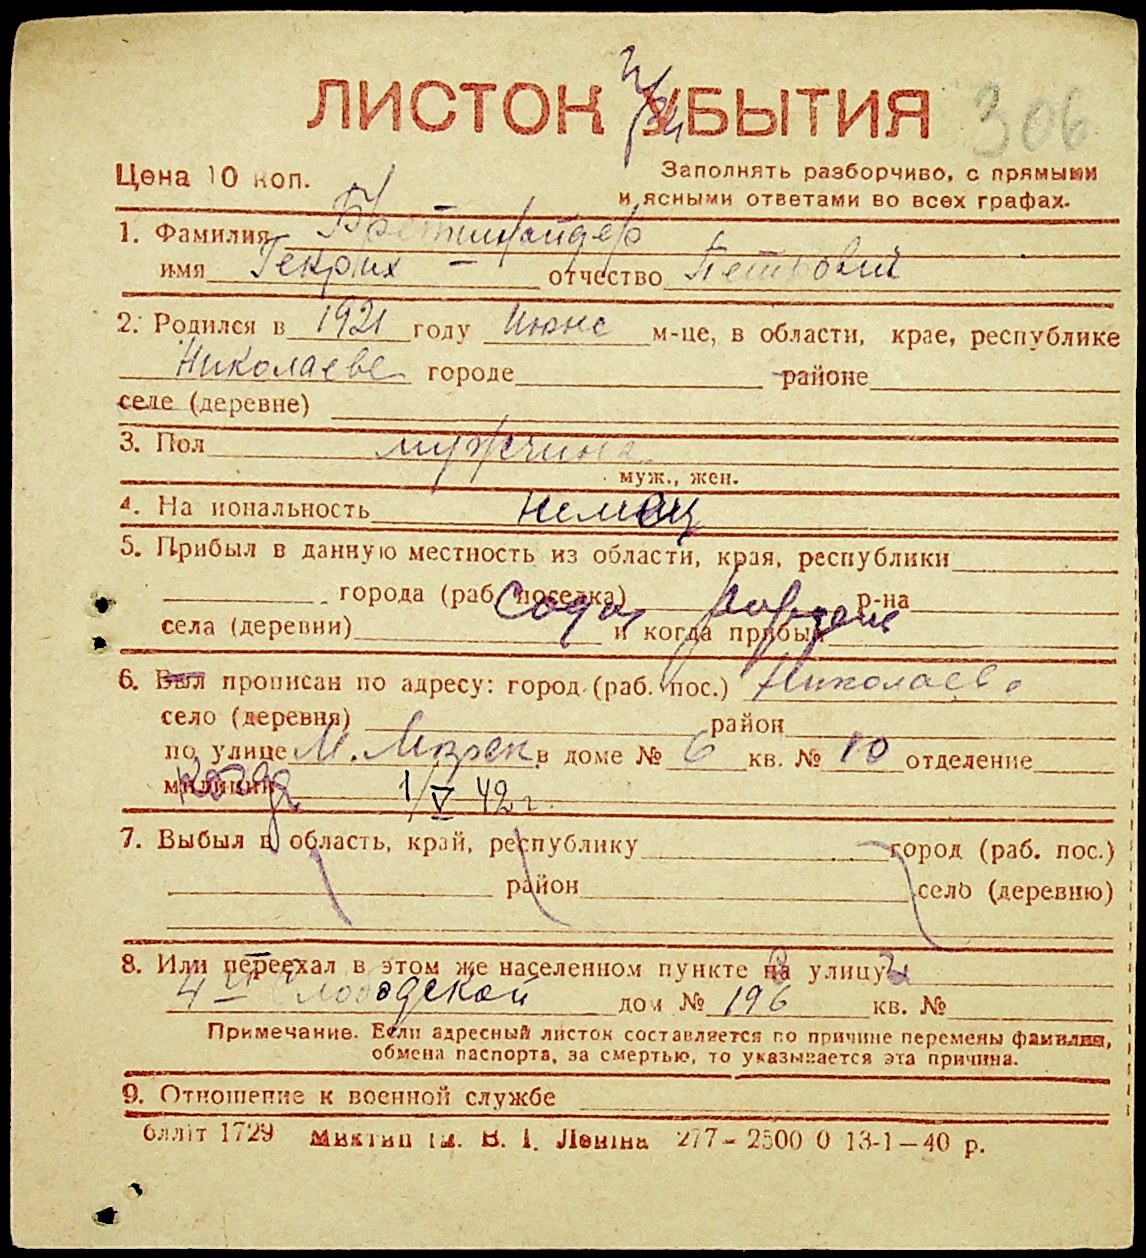 ЛИСТОК УБЫТИЯ 306
Цена 10 коп.
Заполнять разборчиво, с прямыми
и ясными ответами во всех графах.
1. Фамилия Бретшнайдер
имя Генрих — отчество Петрович
2. Родился в 1921 году Июне м-це, в области, крае, республике
Николаеве городе районе
селе (деревне)
3. Пол мужчина
муж., жен.
4. На иональность немец
5. Прибыл в данную местность из области, края, республики
города (раб. поселка) р-на
села (деревни) и когда прибыл
6. Был прописан по адресу: город (раб. пос.) Николаев
село (деревня) район
по улице в доме № 6 кв. № 10 отделение
милиции когда 1/V 42 г.
7. Выбыл в область, край, республику город (раб. пос.)
район село (деревню)
8. Или переехал в этом же населенном пункте на улицу
4й Слободской дом № 196 кв. №
Примечание. Если адресный листок составляется по причине перемены фамилии,
обмена паспорта, за смертью, то указывается эта причина.
9. Отношение к военной службе
блліт 1729 Миктип ім. В. І. Леніна 277—2500 0 13-1—40 р.